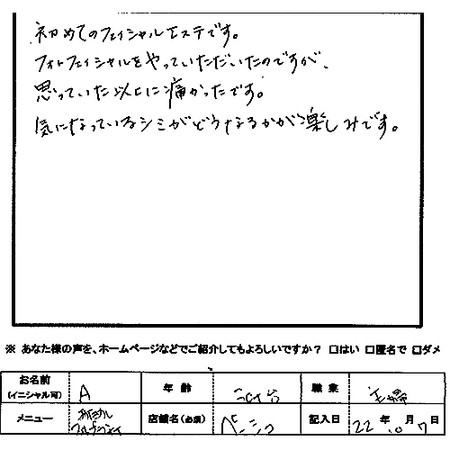 初めてのフェイシャルエステです。
フォトフェイシャルをやっていただいたのですが、
思っていた以上に痛かったです。
気になっているシミがどうなるかが楽しみです。
※ あなた様の声を、ホームページなどでご紹介してもよろしいですか？ □はい □匿名で □ダメ
お名前 (イニシャル可) A 年齢 職業 主婦
メニュー 店舗名(必須) 記入日 22年10月7日